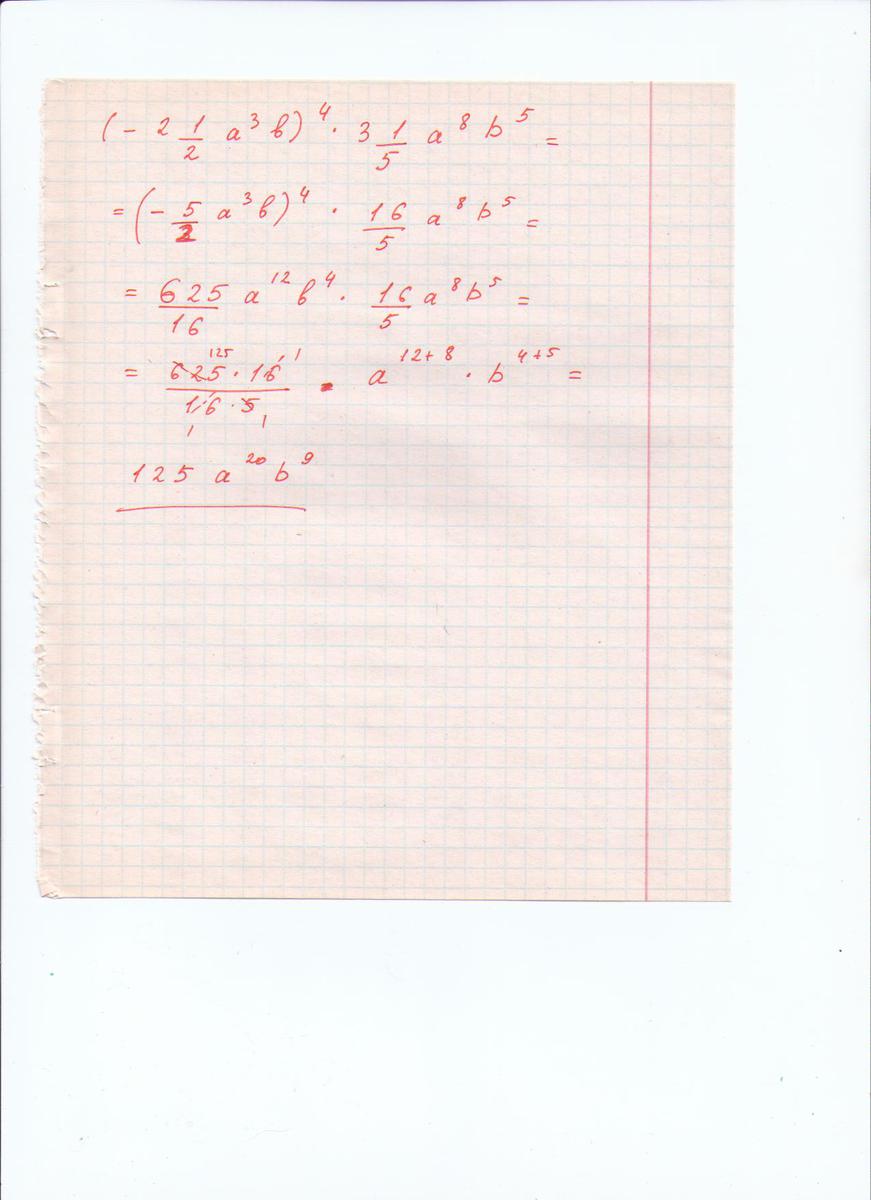 (- 2 1/2 a³ в)⁴ · 3 1/5 a⁸ b⁵ =
= (- 5/2 a³ в)⁴ · 16/5 a⁸ b⁵ =
= 625/16 a¹² в⁴ · 16/5 a⁸ b⁵ =
125 1
= 625 · 16/16 · 5 · a¹²⁺⁸ · b⁴⁺⁵ =
1 1
125 a²⁰ b⁹